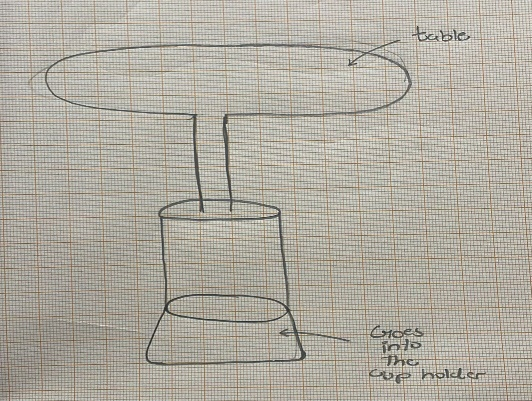 table
Goes
into
The
cup holder